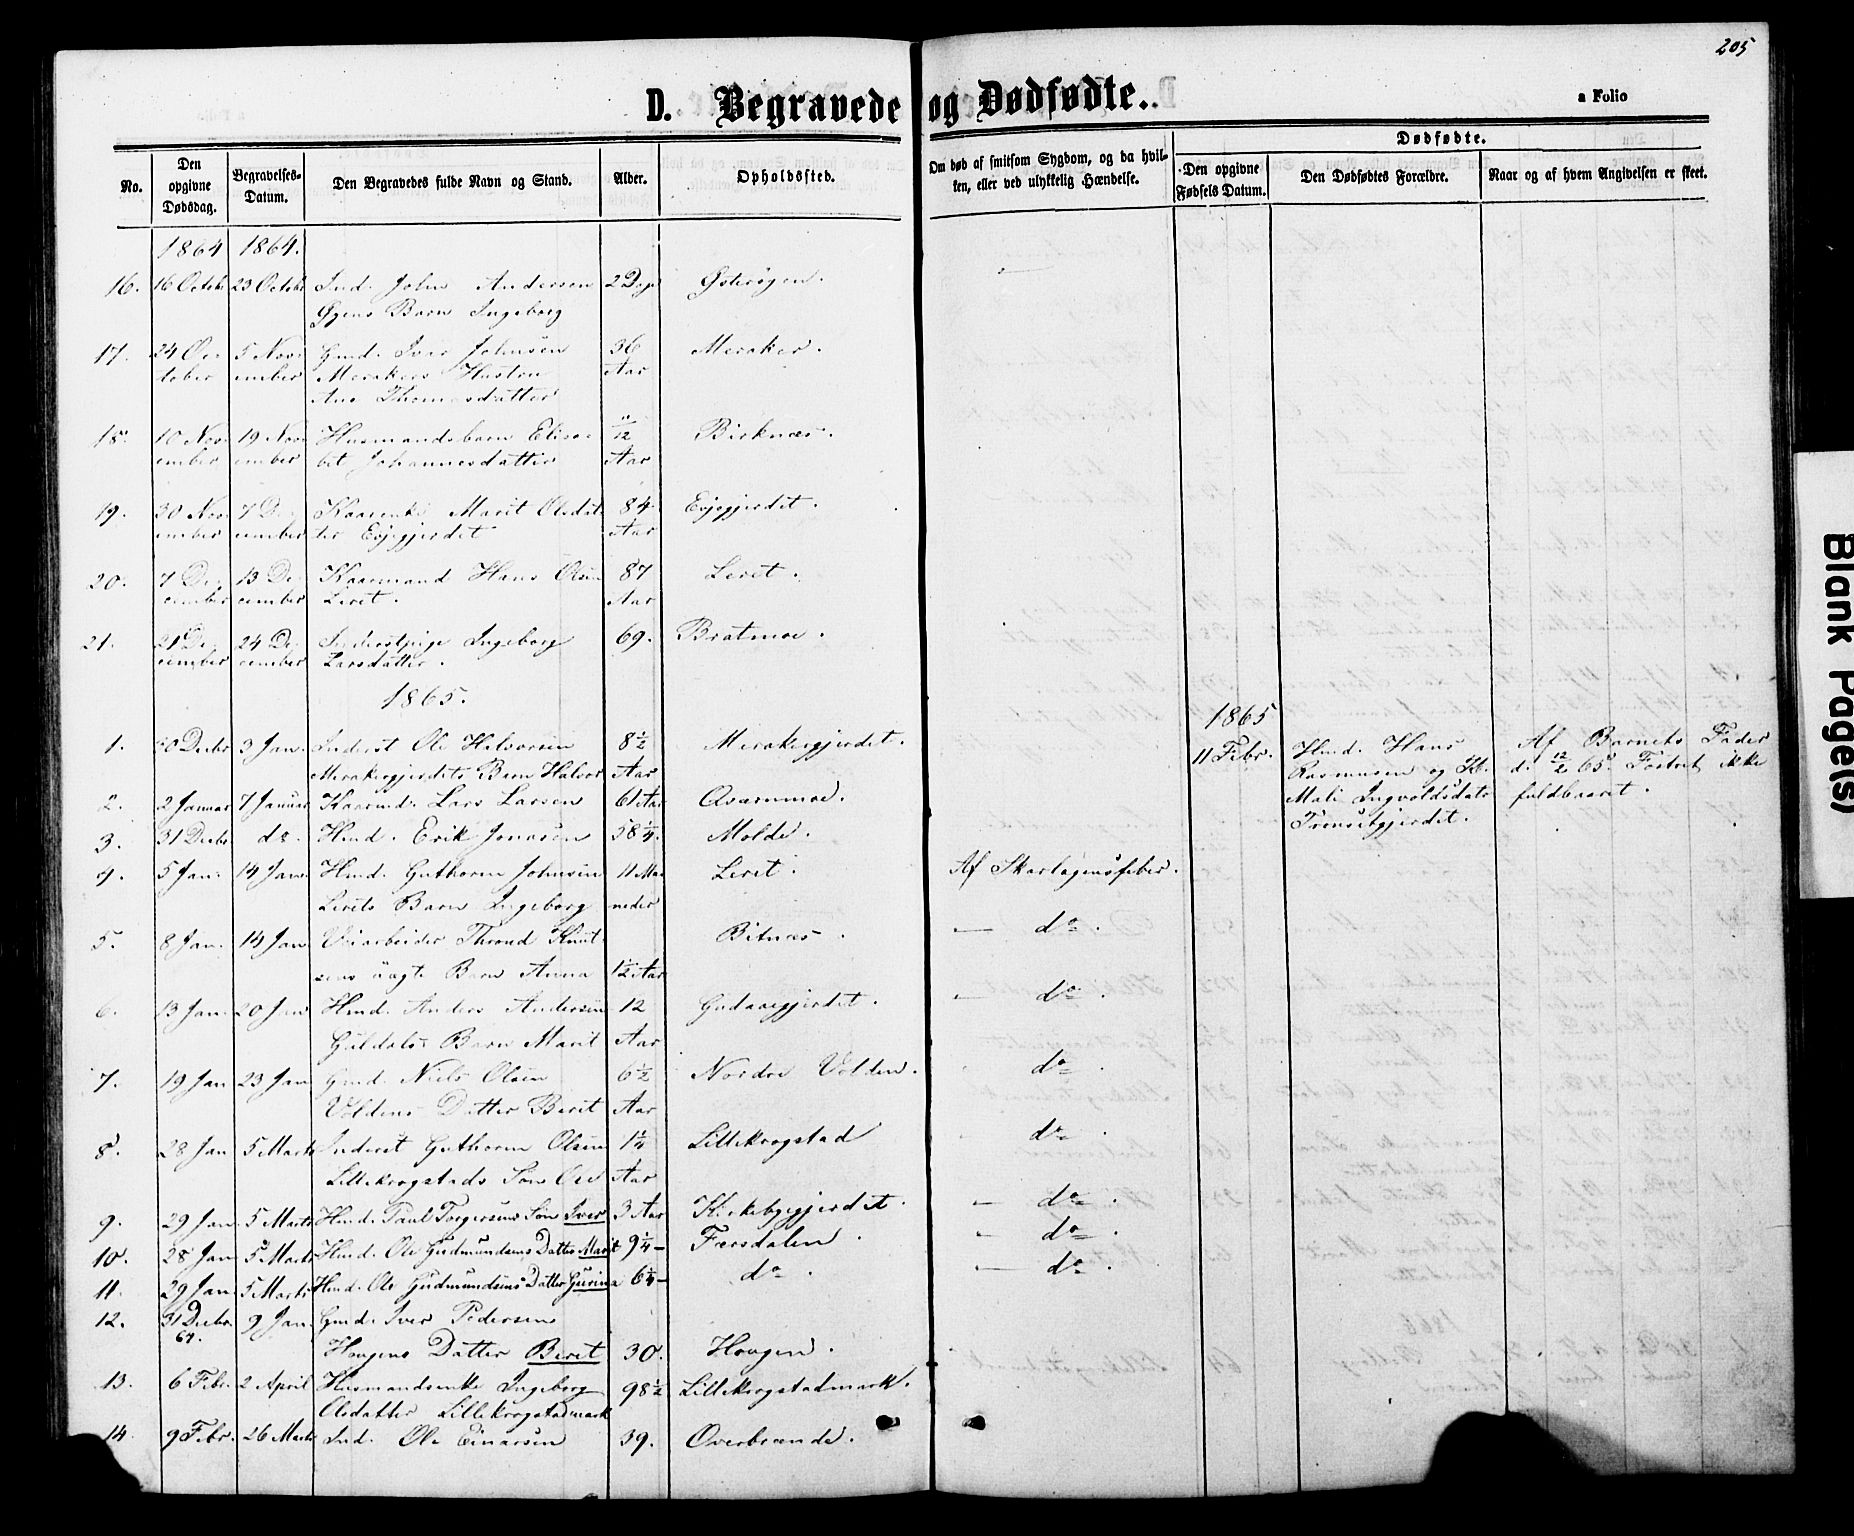 205
D. Begravede og Dødfødte.
a Folio
No.
Den opgivne Dødsdag.
Begravelses-Datum.
Den Begravedes fulde Navn og Stand.
Alder.
Opholdssted.
Om død af smitsom Sygdom, og da hvilken, eller ved ulykkelig Hændelse.
Dødfødte.
Den opgivne Fødsels Datum.
Den Dødfødtes Forældre.
Naar og af hvem Angivelsen er skeet.
1864 1864.
16. 16 Octobr 23 Octobr Ind. John Andersen 2 Dage Østerøgen.
Øgens Barn Ingeborg
17. 24 Oc- 5 Nov- Gmd. Iver Johnsen 36 Meraker.
tober ember Merakers Hustru Aar
Ane Thomasdatter
18. 10 Nov- 19 Nov- Husmandsbarn Elisa- 11/12 Birknæs.
ember ember bet Johannesdatter Aar
19. 30 Nov- 7 De- Kaarenke Marit Olsdat- 84 Evjegjerdet.
ember cember ter Evjegjerdet Aar
20. 7 De- 13 De- Kaarmand Hans Olsen 87 Leret.
cember cember Leret. Aar
21. 21 De- 24 De- Inderstpige Ingeborg 69. Bratmoe.
cember cember Larsdatter.
1865.
1865
1. 30 Decbr 3 Jan. Inderst Ole Halvorsen 8½ Merakergjerdet.
Merakergjerdets Barn Halvor Aar
11 Febr. Hmd. Hans Af Barnets Fader
Rasmusen og H. d. 12/2 65. Fostret ikke
Mali Ingvoldsdatr fuldbaaret.
Trensetgjerdet.
2. 2 Januar 7 Januar Kaarmd. Lars Larsen 61 Aar Qvarnmoe.
3. 31 Decbr do. Hmd. Erik Jonasen 58¼. Molde.
4. 5 Jan. 14 Jan. Hmd. Guthorm Johnsen 11 Maa Leret. Af Skarlagensfeber.
Lerets Barn Ingeborg neder
5. 8 Jan. 14 Jan Veiarbeider Thrond Knut- Bitnæs. — do.
sens uægte Barn Anna 1½ Aar
6. 13 Jan. 20 Jan Hmd. Anders Andersen 12 Gudaaegjerdet. — do.
Guldals Barn Marit Aar
7. 19 Jan 23 Jan Gmd. Niels Olsen 6½ Nordre Volden. do.
Voldens Datter Berit Aar
8. 28 Jan 5 Marts Inderst Guthorm Olsen 1¼ Lillekrogstad do.
Lillekrogstads Søn Ole Aar
9. 29 Jan. 5 Marts Hmd. Paul Torgersens Søn Iver 3 Aar Kirkebygjerdet. — do.
10. 28 Jan 5 Marts Hmd. Ole Gudmundsens Datter Marit 9¼ — Færsdalen. - do.
11. 29 Jan. 5 Marts Hmd. Ole Gudmundsens Datter Gurina 6¼ — do. - do.
12. 31 Decbr. 9 Jan. Gmd. Iver Pedersens
64. Hougens Datter Beret 30. Hougen.
13. 6 Febr. 2 April Husmandsenke Ingeborg 98½ Lillekrogstadmark.
Olsdatter Lillekrogstadmark
14. 9 Febr. 26 Marts Ind. Ole Einarsen 39. Overbrænde.
Blank Page(s)